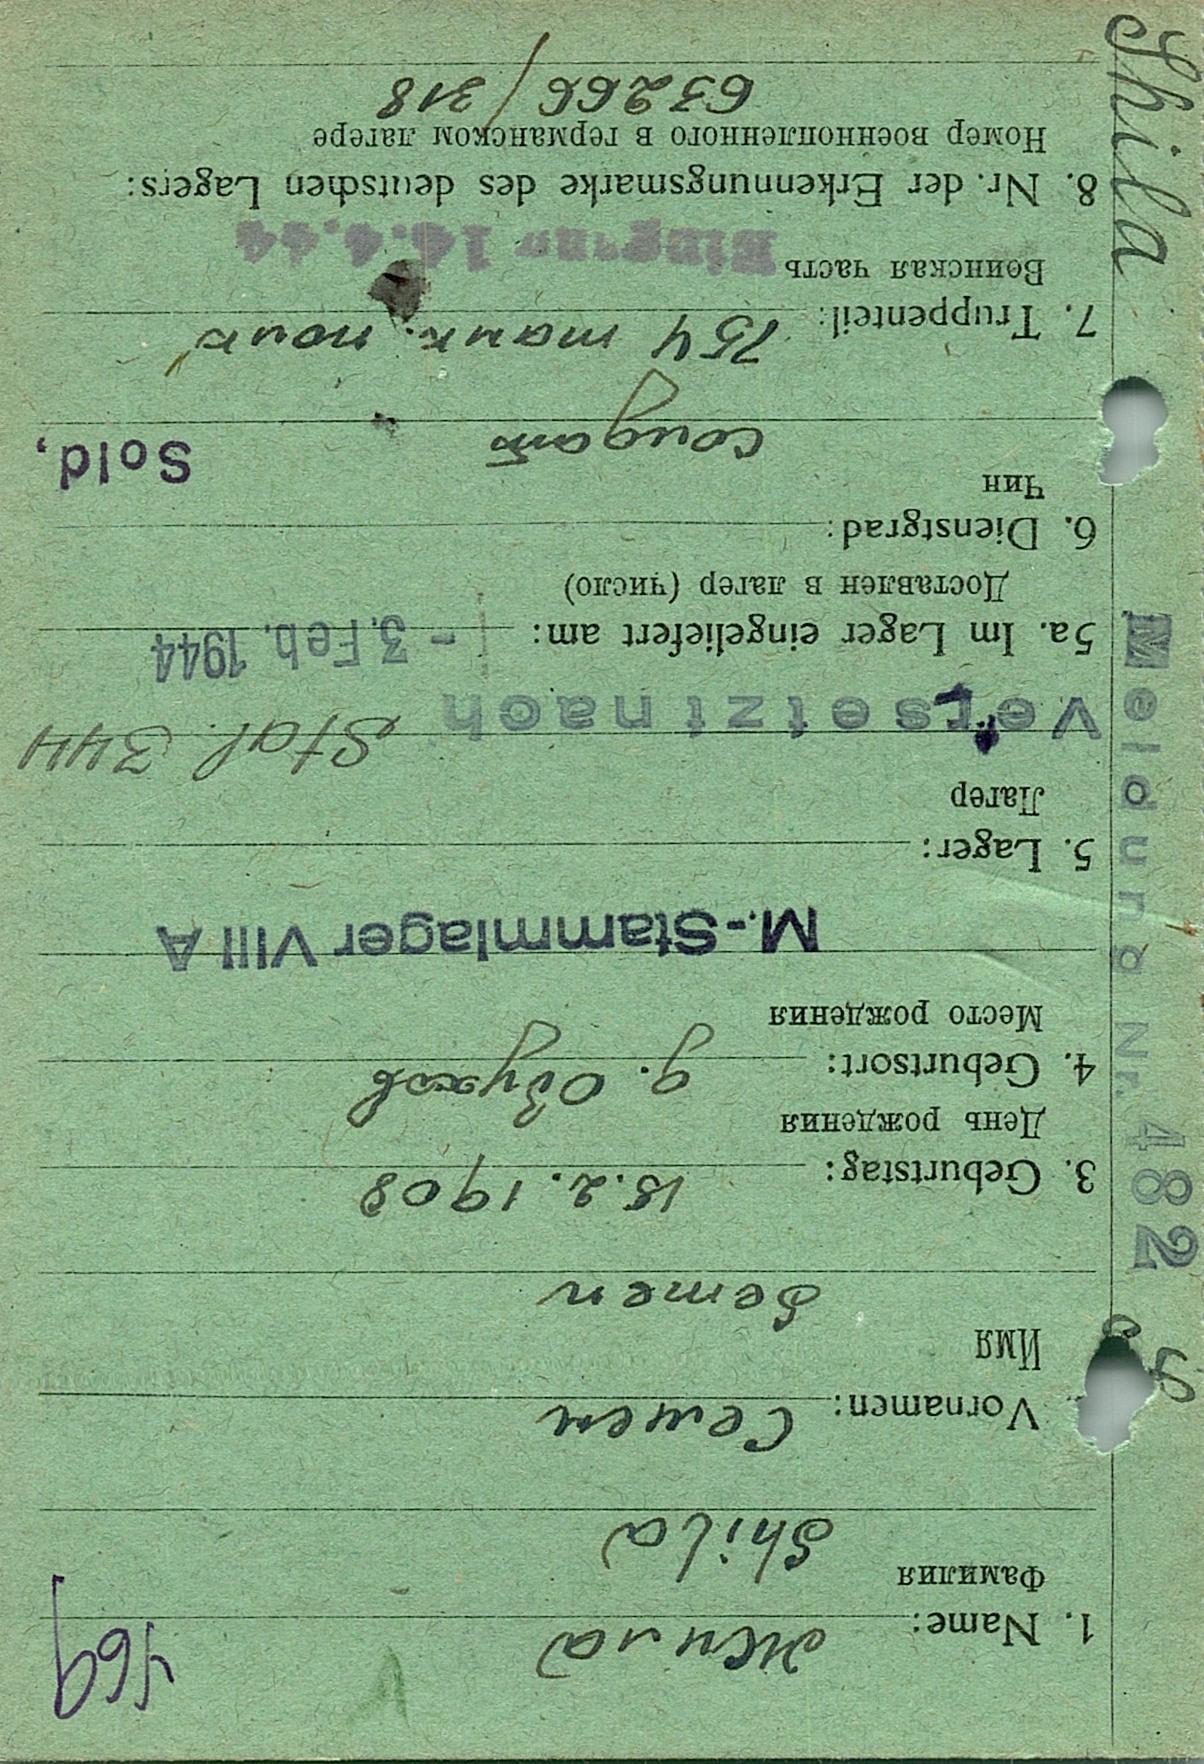 169
1. Name: Жила
Фамилия
Shila
Vornamen: Семен
Имя
Semen
3. Geburtstag: 15.2.1908
День рождения
4. Geburtsort: д. Обухов
Место рождения
M.-Stammlager VIII A
5. Lager:
Лагер
Versetzt nach Stal. 344
5a. Im Lager eingeliefert am: - 3. Feb. 1944
Доставлен в лагер (число)
6. Dienstgrad:
Чин
Sold,
солдат
7. Truppenteil: 754 полк
Воинская часть
Eingang 14.4.44
8. Nr. der Erkennungsmarke des deutschen Lagers:
Номер военнопленного в германском лагере
63266/318
Meldung Nr. 482
Shila